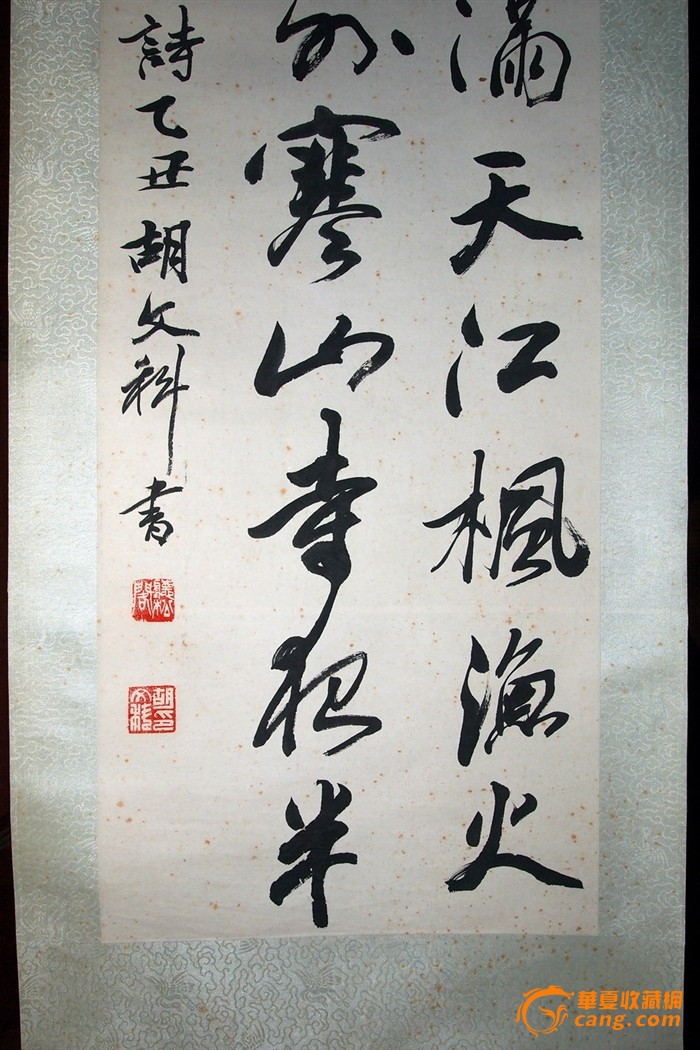 满天江楓漁火
外寒山寺夜半
詩乙丑胡文科書
華夏收藏網
cang.com